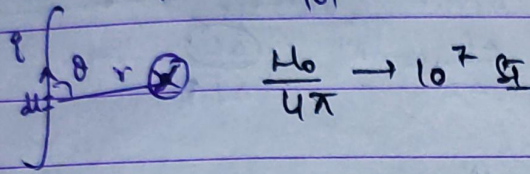 i
dl θ r
μ₀/4π → 10⁷ SI